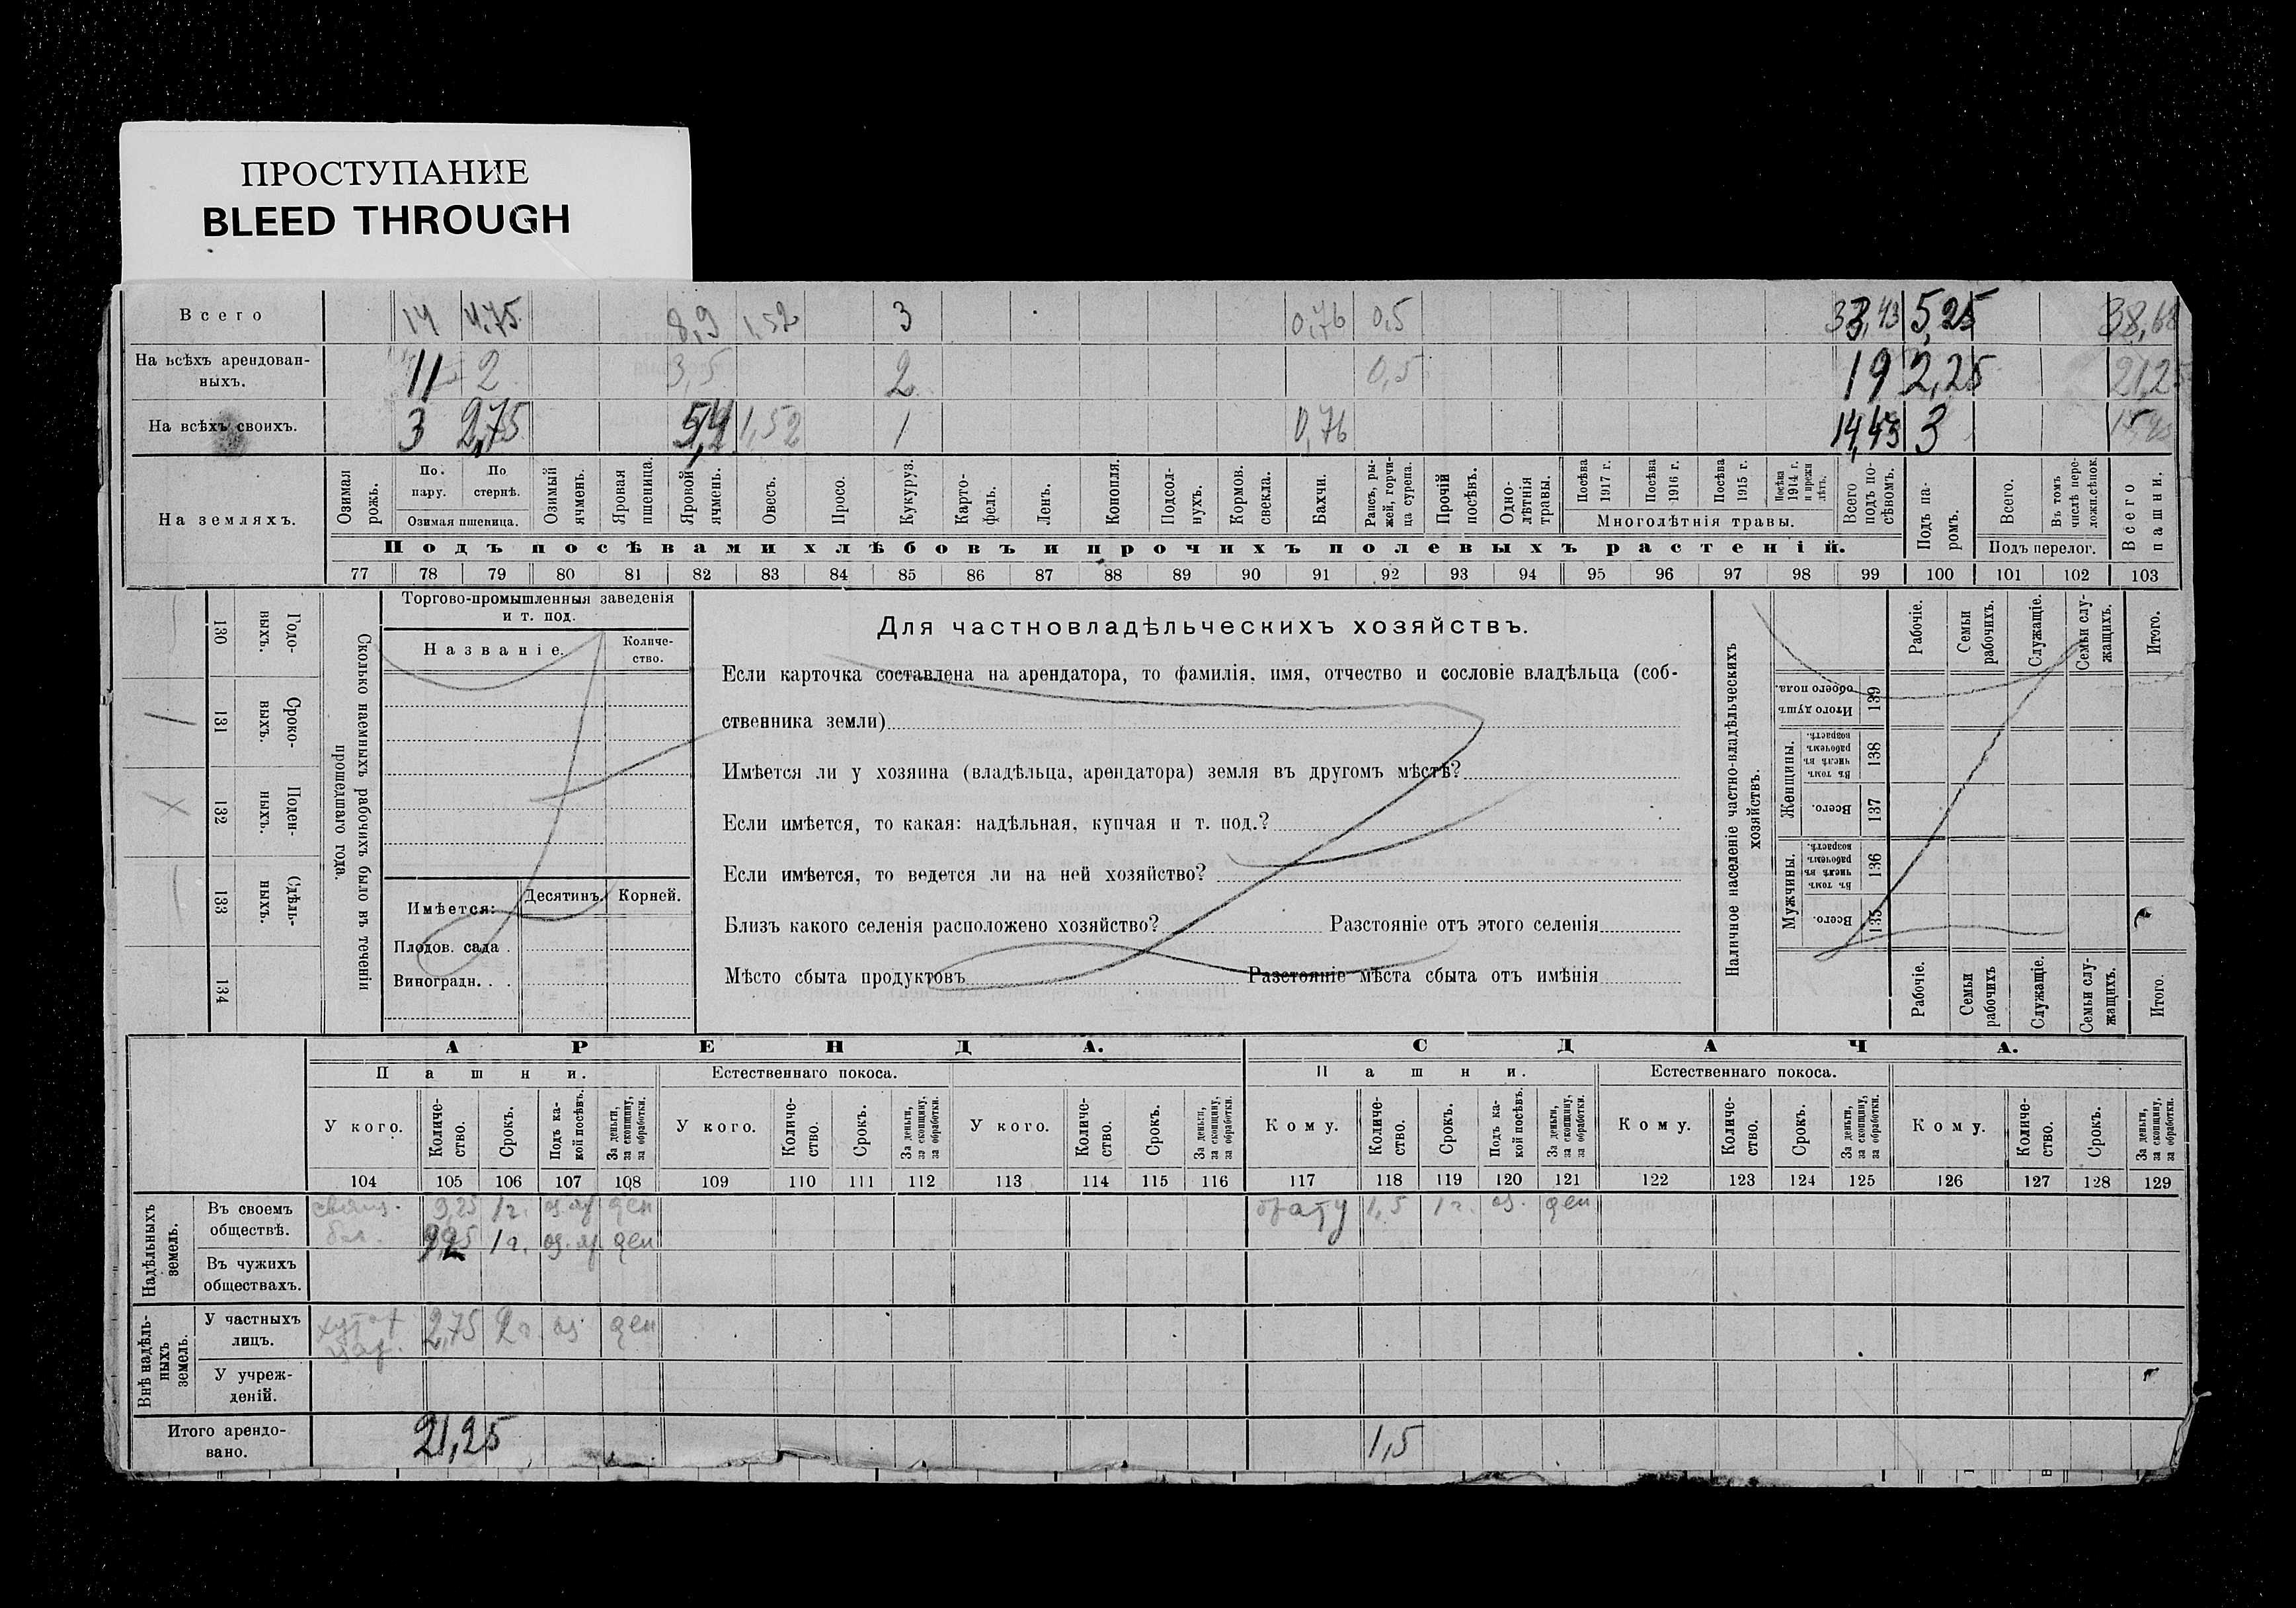 ПРОСТУПАНИЕ
BLEED THROUGH
Всего 14 4,75 8,9 1,52 3 0,76 0,5 33,43 5,25 38,68
На всѣхъ арендован-
ныхъ. 11 2 3,5 2 0,5 19 2,25 21,25
На всѣхъ своихъ. 3 2,75 5,4 1,52 1 0,76 14,43 3
На земляхъ.
Озимая рожь.
По пару.
По стернѣ.
Озимая пшеница.
Озимый ячмень.
Яровая пшеница.
Яровой ячмень.
Овесъ.
Просо.
Кукуруз.
Карто-
фель.
Ленъ.
Конопля.
Подсол-
нухъ.
Кормов. свекла.
Бахчи.
Рапсъ, ры-
жей, горчи-
ца сурепа.
Прочій посѣвъ.
Одно-
лѣтнія травы.
Посѣва 1917 г.
Посѣва 1916 г.
Посѣва 1915 г.
Посѣва 1914 г. и прежн лѣтъ.
Многолѣтнія травы.
Всего подъ по-
сѣвомъ.
Подъ па-
ромъ.
Всего.
Въ томъ числѣ пере-
ложн.сѣнок.
Подъ перелог.
Всего пашни.
Подъ посѣвами хлѣбовъ и прочихъ полевыхъ растеній.
77 78 79 80 81 82 83 84 85 86 87 88 89 90 91 92 93 94 95 96 97 98 99 100 101 102 103
130 Годо-
ныхъ.
131 Сроко-
ныхъ.
132 Поден-
ныхъ.
133 Сдѣль-
ныхъ.
134
Сколько наемныхъ рабочихъ было въ теченіи
прошедшаго года.
Торгово-промышленныя заведенія
и т. под.
Названіе.
Количе-
ство.
Имѣется: Десятинъ. Корней.
Плодов. сада .
Виноградн. . .
Для частновладѣльческихъ хозяйствъ.
Если карточка составлена на арендатора, то фамилія, имя, отчество и сословіе владѣльца (соб-
ственника земли)
Имѣется ли у хозяина (владѣльца, арендатора) земля въ другомъ мѣстѣ?
Если имѣется, то какая: надѣльная, купчая и т. под.?
Если имѣется, то ведется ли на ней хозяйство?
Близъ какого селенія расположено хозяйство? Разстояніе отъ этого селенія
Мѣсто сбыта продуктовъ Разстояніе мѣста сбыта отъ имѣнія
Наличное населеніе частно-владѣльческихъ
хозяйствъ.
Рабочіе. Семьи рабочихъ. Служащіе. Семьи слу-
жащихъ. Итого.
Итого душъ обоего пола. 139
Женщины.
Въ томъ числѣ въ рабочемъ возрастѣ. 138
Всего. 137
Мужчины.
Въ томъ числѣ въ рабочемъ возрастѣ. 136
Всего. 135
Рабочіе. Семьи рабочихъ Служащіе. Семьи слу-
жащихъ. Итого.
АРЕНДА. СДАЧА.
Пашни. Естественнаго покоса. Пашни. Естественнаго покоса.
У кого. Количе-
ство. Срокъ. Подъ ка-
кой посѣвъ. За деньги, за скопщину, за обработки. У кого. Количе-
ство. Срокъ. За деньги, за скопщину, за обработки. У кого. Количе-
ство. Срокъ. За деньги, за скопщину, за обработки. Кому. Количе-
ство. Срокъ. Подъ ка-
кой посѣвъ. За деньги, за скопщину, за обработки. Кому. Количе-
ство. Срокъ. За деньги, за скопщину, за обработки. Кому. Количе-
ство. Срокъ. За деньги, за скопщину, за обработки.
104 105 106 107 108 109 110 111 112 113 114 115 116 117 118 119 120 121 122 123 124 125 126 127 128 129
Надѣльныхъ земель.
Въ своемъ обществѣ. 9,25 1 г. оз. яр ден брату 1,5 1 г. оз. ден
1 г. оз. яр ден
Въ чужихъ обществахъ.
Внѣ надѣль-
ныхъ земель.
У частныхъ лицъ. 2,75 2 г. оз ден
У учреж-
деній.
Итого арендо-
вано. 21,25 1,5